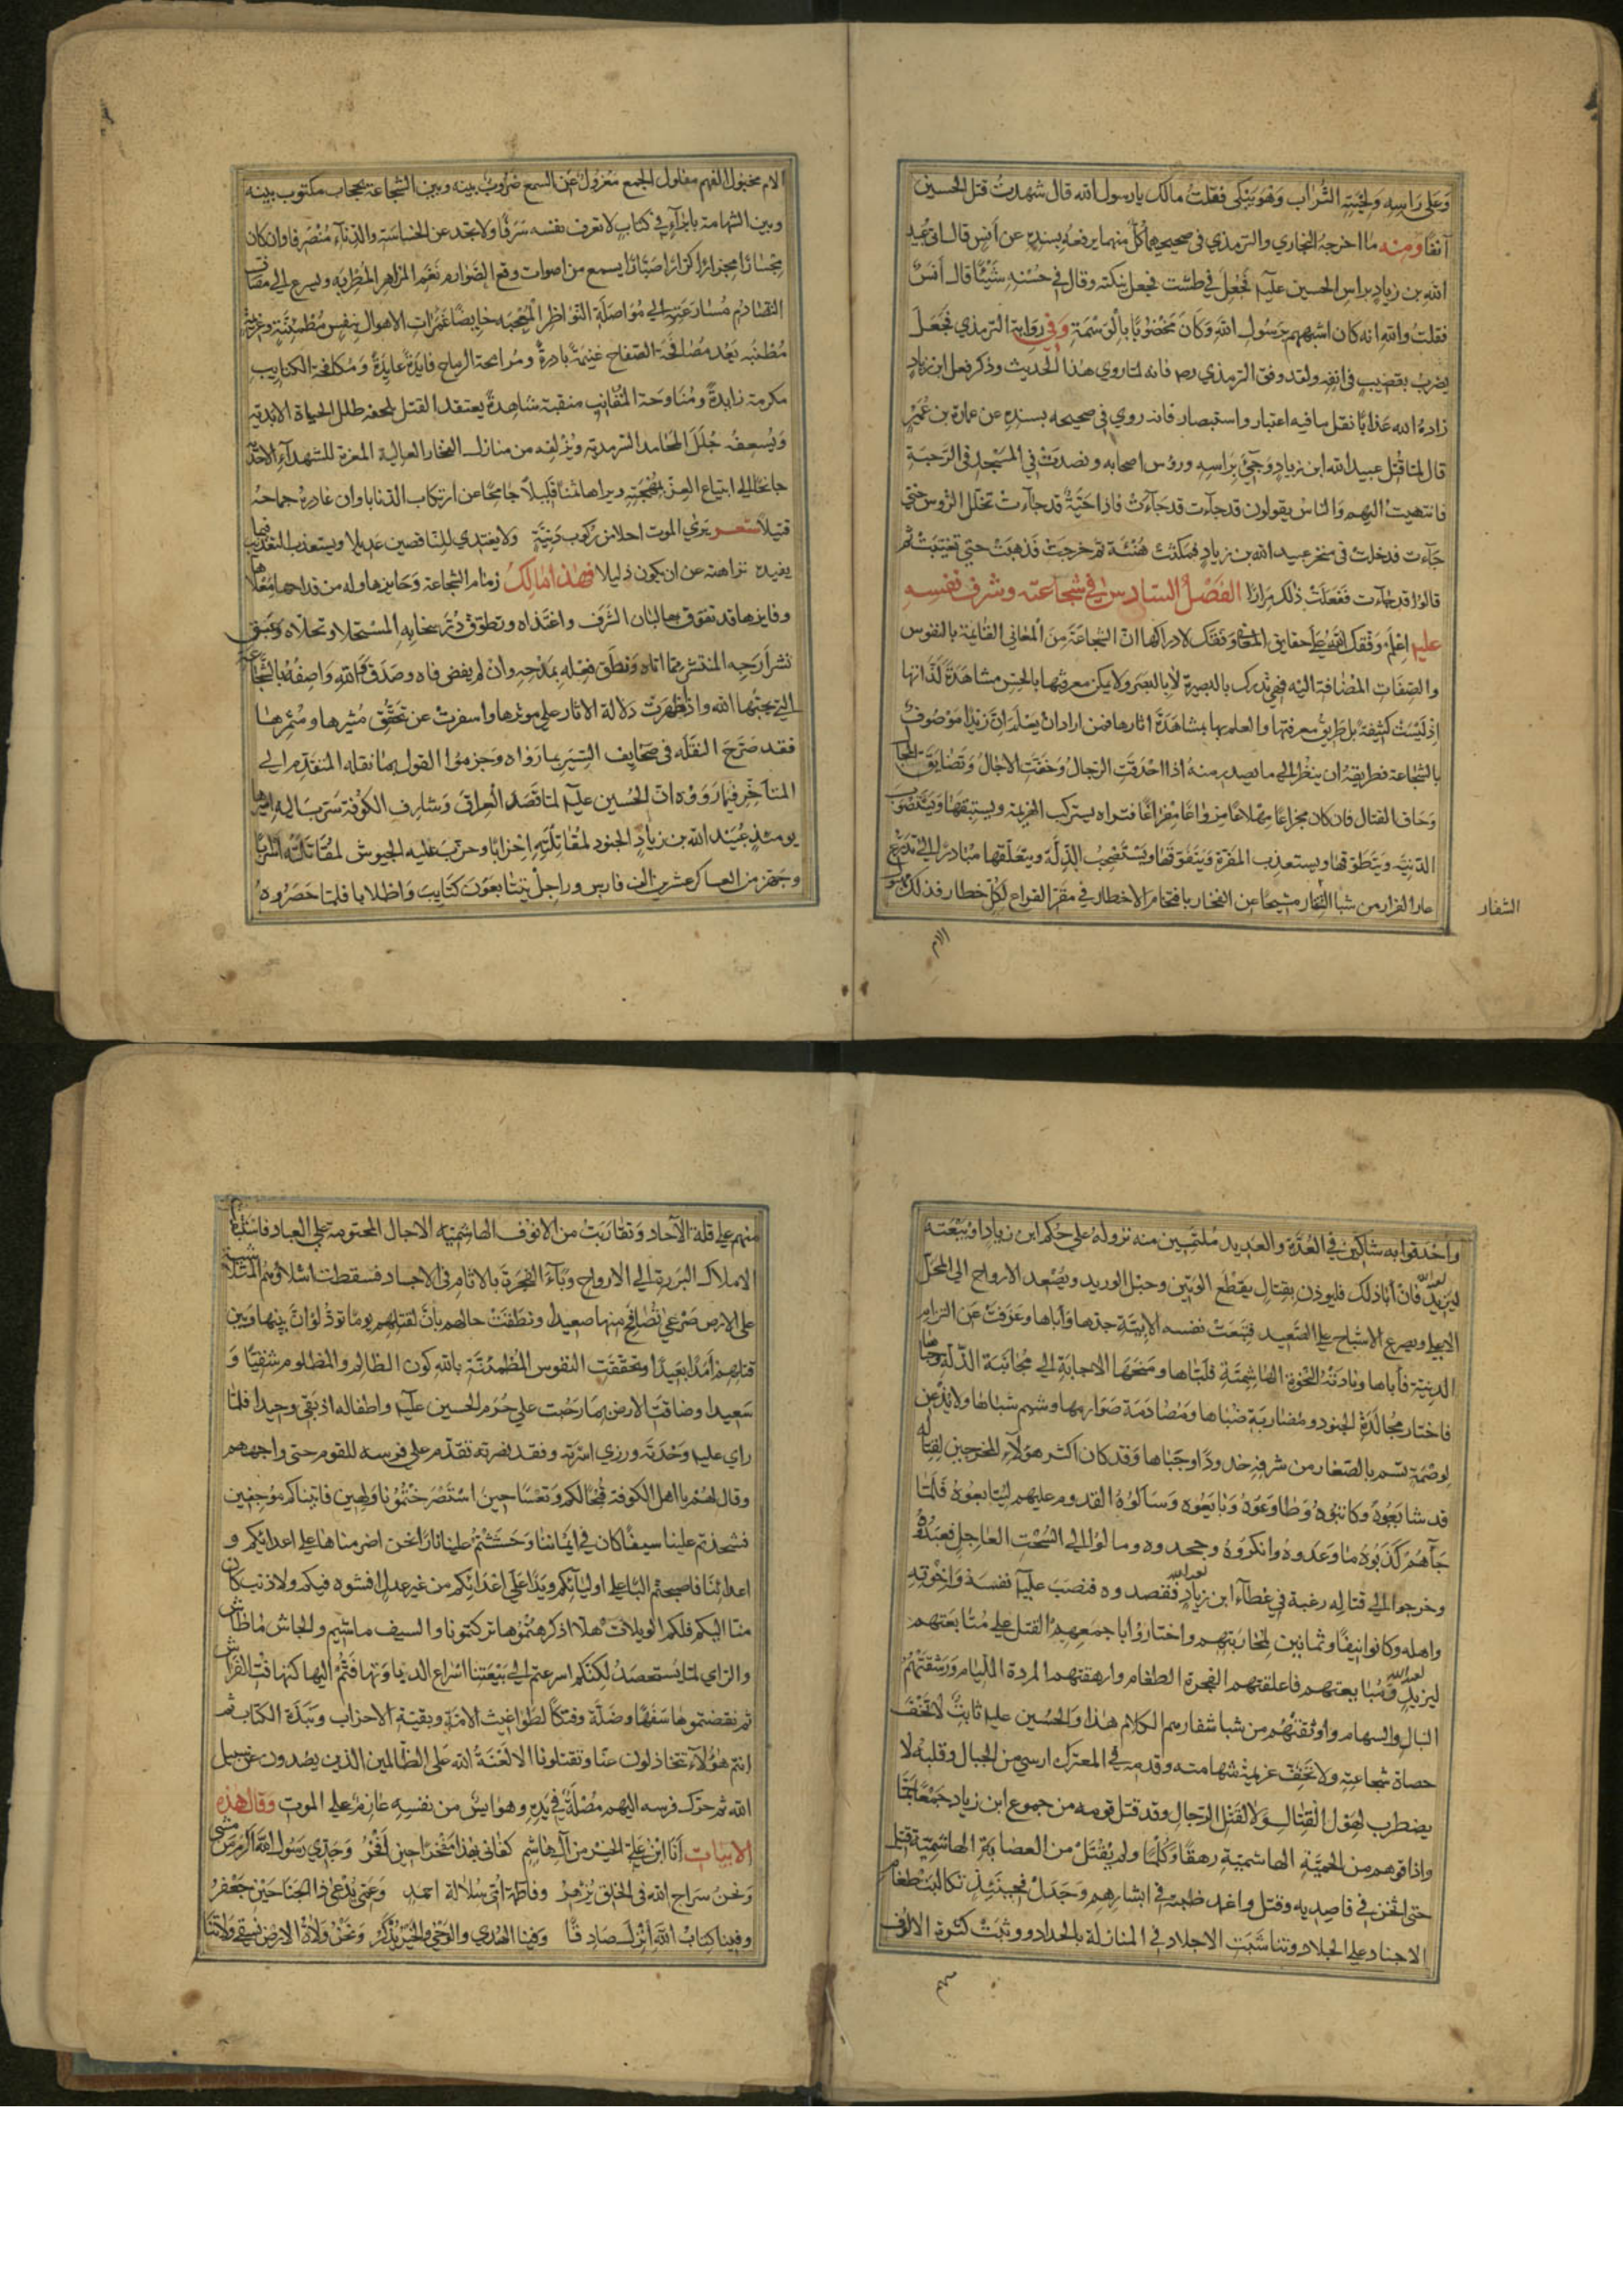 وَعَلى رَاسِهِ وَلِحْيَتِهِ التُّرَاب وَهُوَ يَبْكى فقلتُ مالك يا رسول الله قال شهدتُ قتل الحسين
آنفًا ومنه ما اخرجه البخاري والترمذي فى صحيحيهما كلّ منهما يرفعه بسنده عن أنس قال اتى عبيد
الله بن زياد براس الحسين عليه فَجُعِلَ في طَسْت فجعل ينكته وقال في حُسْنِهِ شَيْئًا قال أَنَسٌ
فقلتُ والله انه كان اشبههم برَسُول الله وَكَانَ مَخْضُوْبًا بالوَسْمَة وَفي رِوَايَة الترمذي فَجَعَلَ
يضربُ بقضيبٍ فى انفه ولقد وفق الترمذي فانه لما روي هذا الحديث وذكر فعل ابن زياد
زاده الله عَذابًا نقل ما فيه اعتبار واستبصار فانه روي في صحيحه بسنده عن عمارة بن عُمَيْر
قال لمّا قُتِل عبيد الله ابن زياد وَجيئَ بِرَاسِهِ ورؤس اصحابه ونضدت في المسجد فى الرَّحبَة
فانتهيتُ اليهم وَالناسُ يقولون قد جآءت قد جَآءتْ فاذا حَيَّةٌ قد جآءتْ تخلل الرؤس حتي
جَآءت فدخلت فى منخر عبيد الله بن زياد فمكثت هُنَيْئَة ثم خرجت فَذهبت حتى تغيّبت ثم
قالوا قد جآءت فَفَعَلَتْ ذلك مِرَارًا الفَصْلُ السَّادس في شجاعته وشرف نفسه
عليه اعْلَم وَفّقك الله على حقايق المعاني وَفّقك لادراكها انّ الشجاعَة مِنَ المعاني القائمة بالنفوس
والصِّفَاتِ المُضَافة اليه فهي تدرك بالبصيرة لا بالبصَر ولا يمكن معرفتها بالحِسّ مشاهَدَةً لذاتها
اذ لَيْسَتْ كثيفة بل طريق معرفتها والعلم بها بمشاهَدَة اثارها فمن اراد ان يَعْلَم انّ زيدًا مَوْصُوفٌ
بالشجاعة فطريقه ان ينظر الي ما يصدر منه اذا احدقت الرّجال وَحَقَّت الاجال وَتَضايَق المجال
وَحاق القتال فان كان مجزاعًا مِهْلاعًا مِفْزَاعًا فتراه يستركب الهزيمة ويستبقهَا وَيَسْتَصْوب
الدنيّة وَيَتَطَوّقها ويستعذب المفرة وَيَتَفَوَّقهَا ويَسْتَصْحِبُ الذِّلَّة ويتعلّقها مبادرًا الي تدرع
عار الفرار من شبا الشفار مشيحًا عن الفخار باقتحام الاخطار في مقرّ القراع لكل خطار فذلك
الشفار
الام
الام مخبول الفهم مفلول الجمع مَعْزول عَن السمع ضروبٌ بينه وبين الشجاعة بحجاب مكتوب بينه
وبين الشهامة بابرآءٍ في كتابٍ لا تعرف نفسه شَرَفًا ولا تجد عن الخساسَة والدنآءة مُنْصَرفا وان كان
مِجْسَارًا مجزارًا كرّارًا صَبّارًا يسمع من اصوات وقع الصَّوارم نَغَم المزاهر المُطْرِبة ويسرع الى مصَاف
التصَادم مُسَارعَته الى مُوَاصَلَة النّواظر المُعْجِبَة خايضًا غمَرَات الاهوال بنفسٍ مُطْمئِنَّة وعزيمة
مُطَنّبة يَعُد مُصَافحَة الصّفاح غنيمَةً بارِدَةً ومُرَامحة الرماح فَايدَةً عَايدَةً وَمُكافحَة الكتايب
مكرمة زايدةً ومُنَاوَحَة المَقَانِب منقبة شاهِدةً يعتقد القتل يلحفه ظلل الحياة الابديّة
وَيُسعِفُه حُلَلَ المحَامد السّرمدية ويُزْلِفه من منازل الفخار العالية المعزة للشهدآء الاحديّة
جانحًا الي ابتياع العِزّ بمُهْجَتِه ويراها ثمنًا قليلاً جامحًا عن ارتكاب الدّنايا وان غادره جماحه
قتيلا شعر يَرى الموت احلا من رُكوب دَنِيَّة ولا يغتدي للناقصين عديلا ويستعذب التعذيب فيما
يفيده نزاهته عن ان يكون ذليلا فهذا مَالِكُ زمَام الشجاعة وَحَايزها وله من قداحها مُعَلاها
وفايزها قد تفوّق بها لبان الشَّرَف واغتذاه وتطوّق دُرَّ سخابه المُسْتَحلا وتحلاه وَعبق
نشر أرَجِهِ المنتشر مما اتاه ونطَق فِعْلهِ بمَدْحِهِ وانْ لم يفض فاه وصَدَق وَالله وَاصِفُهُ بالشّجاعَة
التي يحبُّهَا الله واذ ظهَرَتْ دَلالة الاثار علي موثرها واسفرتْ عن تحقق مُثيرها ومُثمِرها
فقد صَرّحَ النقَلَه في صحَايف السِّيَر بما رَوَاه وَجزمُوا القول بمَا نقله المتقدم الى
المتأخر فيما رَوَوْه انّ الحُسَين عليه لمّا قصَد العِراقَ وَشارَف الكوفة سَرَّبَ اليه اميرها
يومئذٍ عُبَيْد الله بن زيادٍ الجنود لمُقاتلَتِهِ احْزابًا وحَزّب عليه الجيوش لمُقَاتلته اسْرابا
وجَهّز من العساكر عشرين الف فارس وراجل يتتابعُوْن كتايب وَاطلابا فلما حَصَرُوه
وأحْدَقوا به شاكين في العُدّة والعديد مُلتمِسين منه نزوله على حكم ابن زياد او بَيْعَتِه
ليَزيدَ فان أبا ذلك فليوذن بقتالٍ يقطع الوَتين وحبْل الوريد ويُصْعِد الارواح الى المحَلّ
الاعلى ويصرع الاشباح على الصّعيد فتبعَت نفسه الابيّة جدها وَاباها وعَزفت عَن التزام
الدنية فأباها ونادَتْهُ النخوة الهاشميَّة فلبّاها ومَنحَهَا الاجابة الى مجانبَة الذّلّة وحباها
فاختار مُجالدَة الجنود ومُضاربة ضُباها ومُصَادَمَة صَوارمها وشيم شباها ولا يذعن
لوصْمةٍ تسم بالصّغار من شرفه خدودًا وجباها وَقد كان اكثر هؤلآء المخرجين لقتاله
قد شايَعُوهُ وكاتبُوهُ وَطاوَعَوْهُ وَبايَعُوه وَسَألُوْهُ القدوم عليهم ليُتابعُوهُ فَلَمّا
جآءَهُمْ كذبُوه مَا وَعَدوهُ وانكرَوْهُ وجحدوه ومالوا الى السُّحْت العَاجل فعَبَدُوهُ
وخرجوا الي قتاله رغبة في عَطَآء ابن زيادٍ فقصدوه فنصَبَ عليه نفسَهُ وَاِخْوتِه
واهله وكانوا نيفًا وثمانين لمحاربَتِهم واختارُوا باجمعِهِمُ القتل على مُتابعَتهم
ليزيدَ وَمُبَايعتهم فاعلقتهم الفجرة الطغام وارهقتهم المردة الليَام وَرَشقتهُم
النبال والسهام واوثقتهُم من شبا شفارهم الكلام هذا والحُسين عليه ثابتٌ لا تخف
حصاة شجاعته ولا تخف عزيمة شهامته وقدمه في المعترك ارسى من الجبال وقلبه لا
يضطرب لهَول القِتَال وَلا لقتل الرّجال وقد قتل قومه من جموع ابن زياد جمعًا جمّا
واذاقوهم من الحميَّة الهاشميّة رهقًا وَكلمًا ولم يُقْتل من العصَابة الهاشميّة قتيل
حتى اثخن في قاصديه وقتل واغمد ظُبته في ابشارهم وَجَدَلْ فحينئذٍ تكالبَتْ طغام
الاجناد على الجلاد وتناسَبَت الاجلاد في المنازلة بالحداد ووثبَت كثرة الالوف
منهم
منهم على قلة الآحاد وَتقارَبَت من الانوف الهاشميّة الاجال المحتومة على العباد فاستبقت
الاملاك البَررَة الى الارواح وبَآءَ الفَجرَة بالاثام في الاجساد فسقطت اشلاؤهم المتلاشية
على الارض صَرْعي تُصَافحُ منها صعيدا ونطقتْ حالهم بانّ لقتلِهم يومًا تودّ لَوْ انّ بينها وَبين
قتلهم أمَدًا بعَيدًا وتحقّقت النفوس المُطمئنَّة بالله كون الظالم والمظلوم شقيًا وَ
سَعيدا وضاقت الارض بمَا رَحُبَت على حُرَم الحُسين عليه واطفاله اذ بَقى وحيدا فلمّا
راي عليه وَحْدَتَه ورزي اسْرَتِه وفقد نصْرته تقدّم على فرسه للقوم حتى واجههم
وقال لهُمْ يا اهل الكوفة قُبْحًا لكم وَتعْسًا حين اسْتَصْرَخْتُمُونا وَلِهِين فاتيناكم مُوجِفين
فشحذتم علينا سيفًا كان في ايمانِنا وَحَشَشْتُمْ علينا نارًا نَحن اضرمناها على اعدائكم و
اعدائنَا فاصبحتم البًّا على اوليآئكم ويَدًا عَلَى اعْدَائكم من غير عدل افشوه فيكم ولا ذنب كان
منّا اليكم فلكم الويلات هلا اذ كرهتُمُوها تركتمونا والسيف ماشيم والجاش مَا طاش
والراي لمّا يستحصد لكِنّكم اسرعتم الى بَيْعَتِنا اسْراع الدبا وَتهافَتُّمْ اليها كتهافت الفراش
ثم نقضتموها سَفَهًا وضلّة وفتكًا لطوَاغيت الامّة وبقيّة الاحزاب ونَبَذَة الكتاب ثم
انتم هؤلآء تتخاذلون عنّا وتقتلونا الا لعْنَةُ الله عَلى الظّالمين الذين يصُدون عن سبيل
الله ثم حرّك فرسه اليهم مُصْلَةٌ في يَدِهِ وهو ايسٌ من نفسِهِ عازمٌ على الموت وَقالَ هذِهِ
الابيَات أنَا ابْنُ عليّ الخير من آل هاشم كفاني بهَذا مَفْخَرًا حين افْخَرُ وَجَدّي رَسُول الله اكرَم مَن مَشى
وَنحنُ سرَاج الله في الخلق يُزْهِرُ وفاطمة امّي سُلالة احمد وَعَمّي يُدْعَى ذا الجَنَاحَيْن جَعْفَرُ
وفينا كتابُ اللهِ أُنْزِلَ صَادِقًا وَفينا الهُدي والوَحْيُ والخير يُذْكَرُ وَنحْنُ وُلاةُ الارض نسقي وُلاتنَا